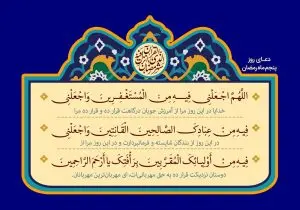 دعای روز
پنجم ماه رمضان
اللَّهُمَّ اجْعَلْنِی فِیهِ مِنَ الْمُسْتَغْفِرِینَ وَاجْعَلْنِی
خدایا در این روز مرا از آمرزش جویان درگاهت قرار ده و قرار ده مرا
فِیهِ مِنْ عِبَادِکَ الصَّالِحِینَ الْقَانِتِینَ وَاجْعَلْنِی
در این روز از بندگان شایسته و فرمانبردارت و در این روز مرا از
فِیهِ مِنْ أَوْلِیَائِکَ الْمُقَرَّبِینَ بِرَأْفَتِکَ یَا أَرْحَمَ الرَّاحِمِینَ
دوستان نزدیکت قرار ده به حق مهربانی‌ات، ای مهربان‌ترین مهربانان.